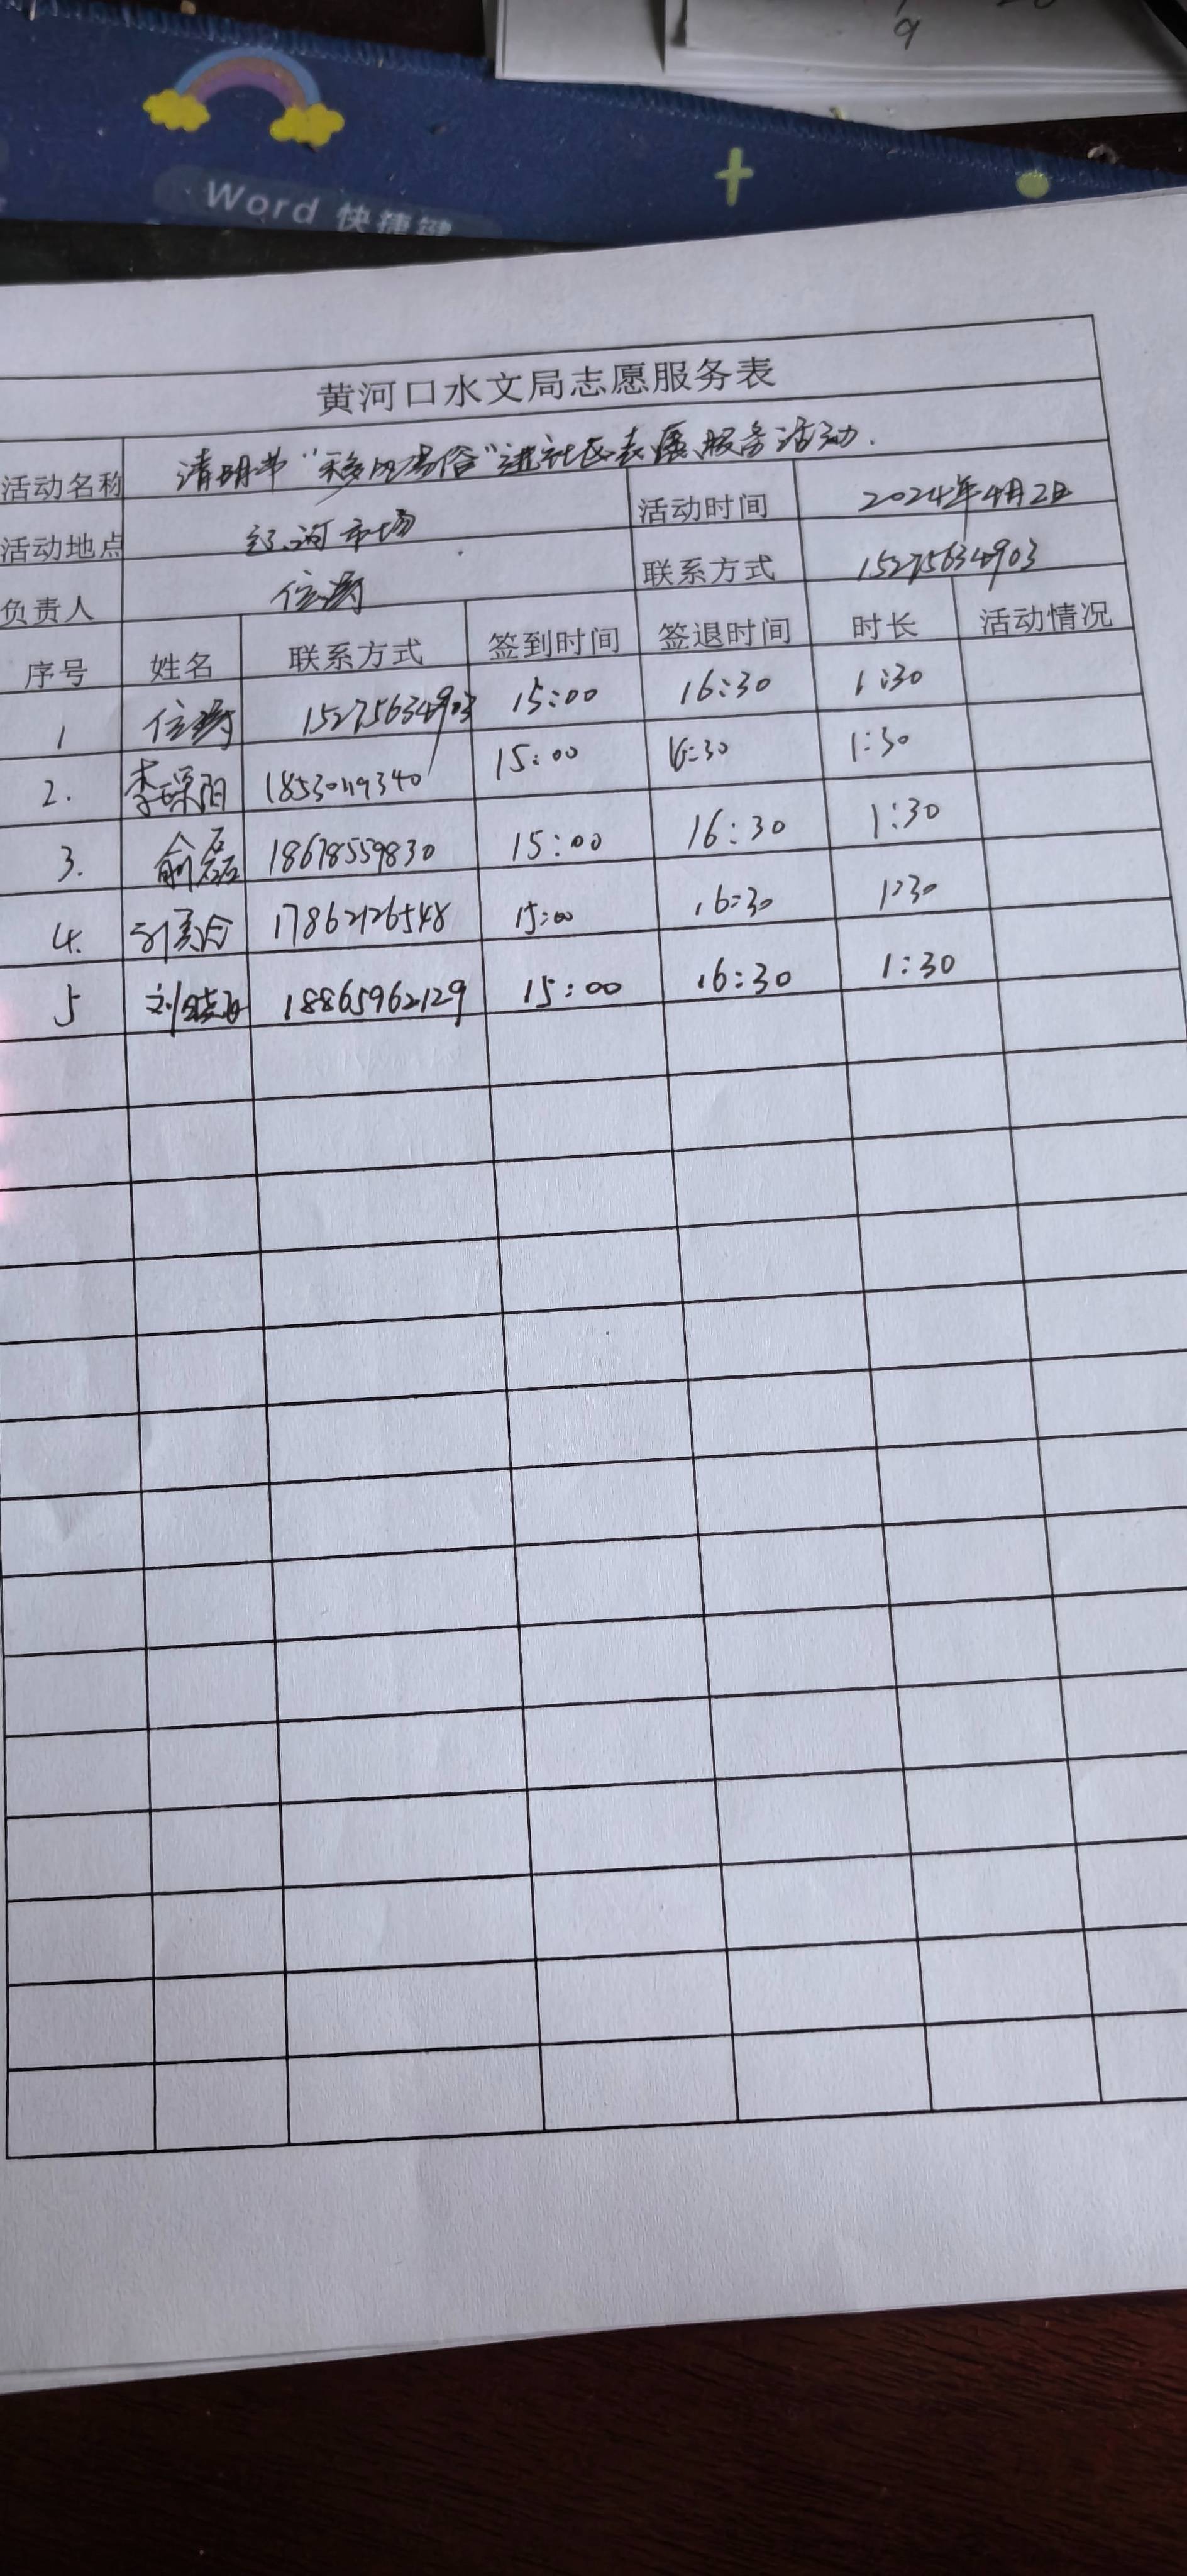 9
Word 快捷键
黄河口水文局志愿服务表
活动名称 清明节“移风易俗”进社区志愿服务活动.
活动地点 红河市场 活动时间 2024年4月2日
负责人 位 联系方式 15275634903
序号 姓名 联系方式 签到时间 签退时间 时长 活动情况
1 位 15275634903 15:00 16:30 1:30
2. 李 阳 18530119340 15:00 16:30 1:30
3. 俞磊 18678559830 15:00 16:30 1:30
4. 17862126548 15:00 16:30 1:30
5 刘 18865962129 15:00 16:30 1:30